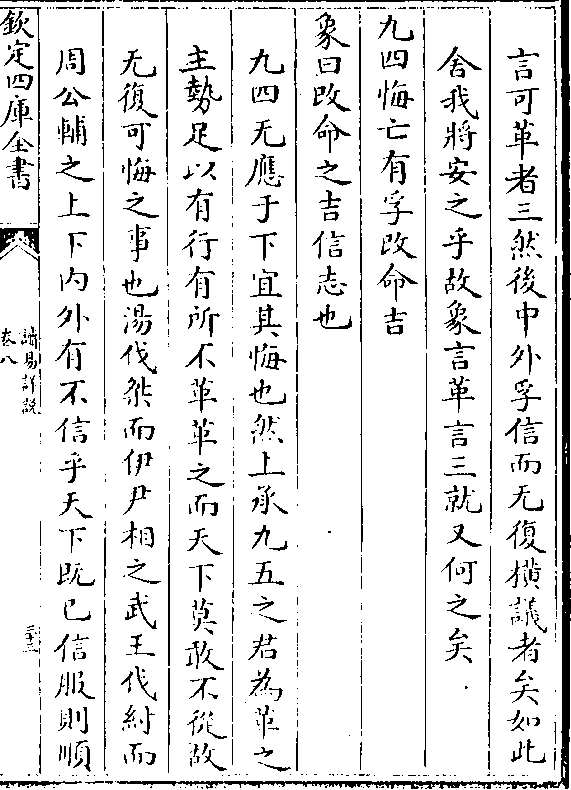 言可革者三然後中外孚信而无復横議者矣如此
舍我將安之乎故象言革言三就又何之矣
九四悔亡有孚改命吉
象曰改命之吉信志也
九四无應于下宜其悔也然上承九五之君為革之
主勢足以有行有所不革革之而天下莫敢不從故
无復可悔之事也湯伐桀而伊尹相之武王伐紂而
周公輔之上下内外有不信乎天下既已信服則順
欽定四庫全書
讀易詳説
卷八
三十三